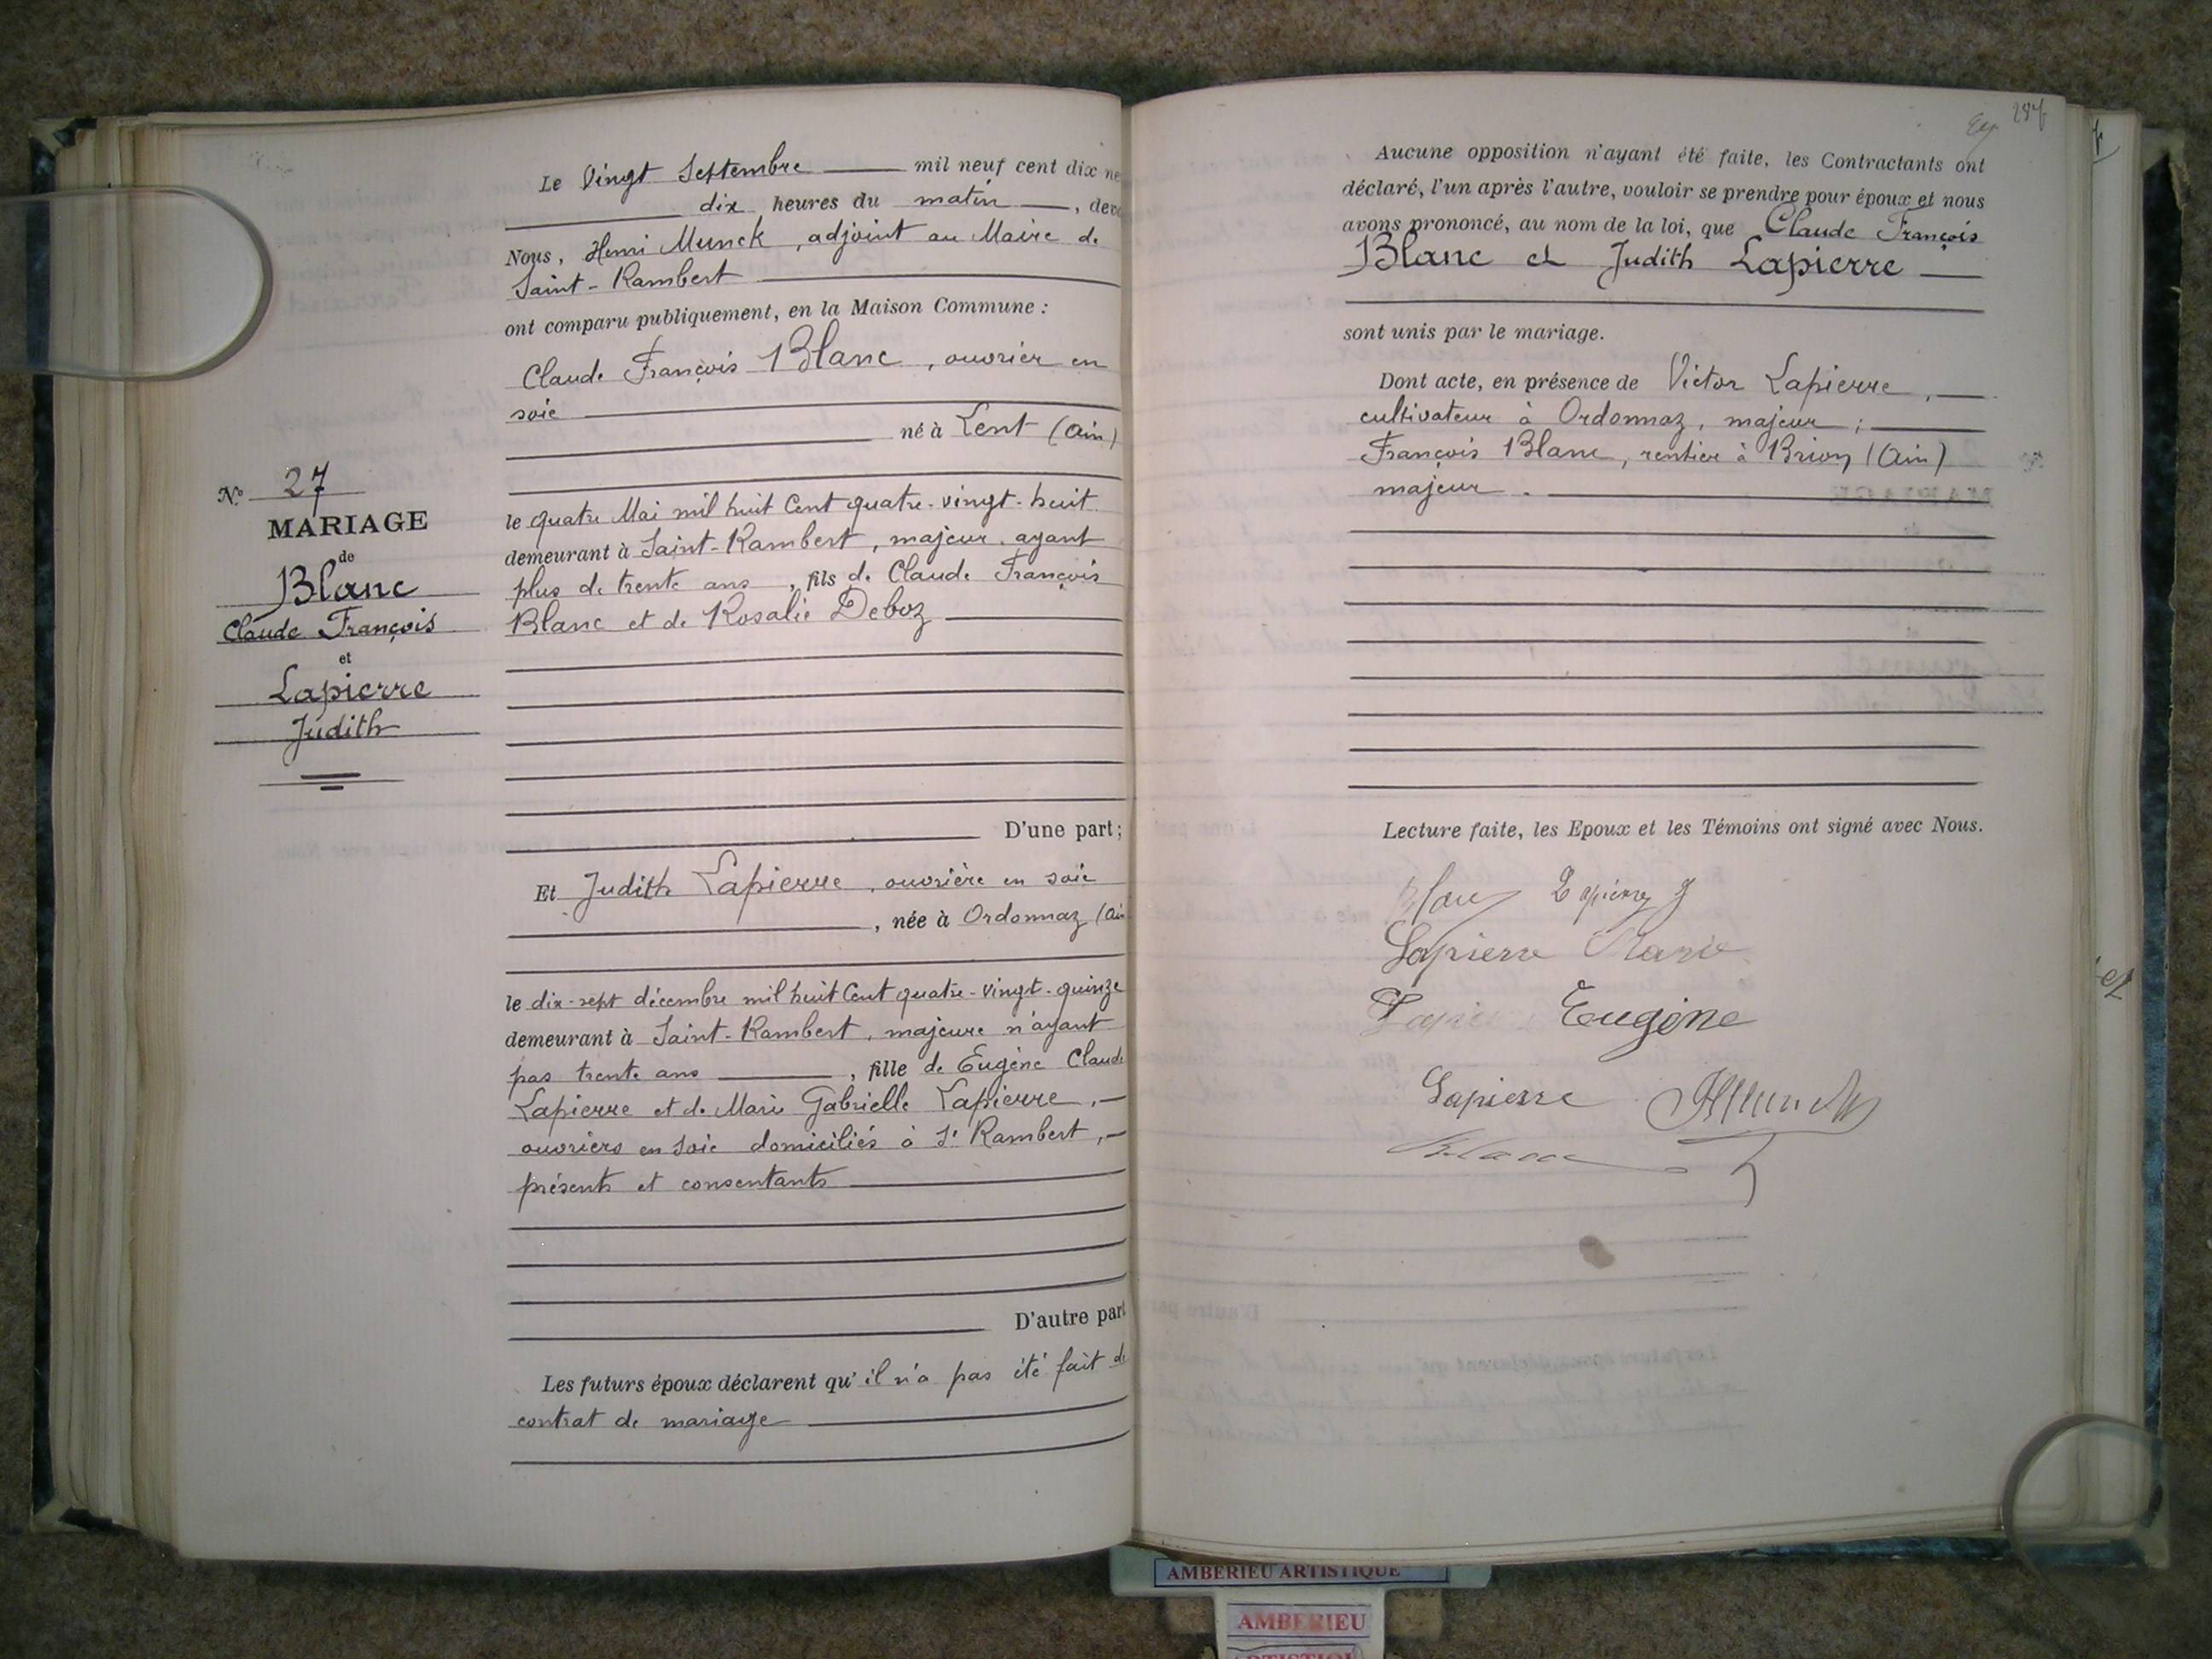 Le Vingt Septembre mil neuf cent dix ne
dix heures du matin, deva
Nous, Henri Munck, adjoint au Maire de
Saint-Rambert
ont comparu publiquement, en la Maison Commune :
Claude François Blanc, ouvrier en
soie
né à Lent (Ain)
le quatre Mai mil huit Cent quatre-vingt-huit
demeurant à Saint-Rambert, majeur, ayant
plus de trente ans, fils de Claude François
Blanc et de Rosalie Deboz
D'une part;
Et Judith Lapierre, ouvrière en soie
, née à Ordonnaz (Ain
le dix-sept décembre mil huit Cent quatre-vingt-quinze
demeurant à Saint-Rambert, majeure n'ayant
pas trente ans, fille de Eugène Claude
Lapierre et de Marie Gabrielle Lapierre,
ouvriers en soie domiciliés à St Rambert,
présents et consentants
D'autre part
Les futurs époux déclarent qu'il n'a pas été fait de
contrat de mariage
N° 27
MARIAGE
de
Blanc
Claude François
et
Lapierre
Judith
Aucune opposition n'ayant été faite, les Contractants ont
déclaré, l'un après l'autre, vouloir se prendre pour époux et nous
avons prononcé, au nom de la loi, que Claude François
Blanc et Judith Lapierre
sont unis par le mariage.
Dont acte, en présence de Victor Lapierre,
cultivateur à Ordonnaz, majeur ;
François Blanc, rentier à Brion (Ain)
majeur.
Lecture faite, les Epoux et les Témoins ont signé avec Nous.
Blanc Lapierre J
Lapierre Marie
Eugène
Lapierre HMunck
Blanc
AMBERIEU ARTISTIQUE
AMBERIEU